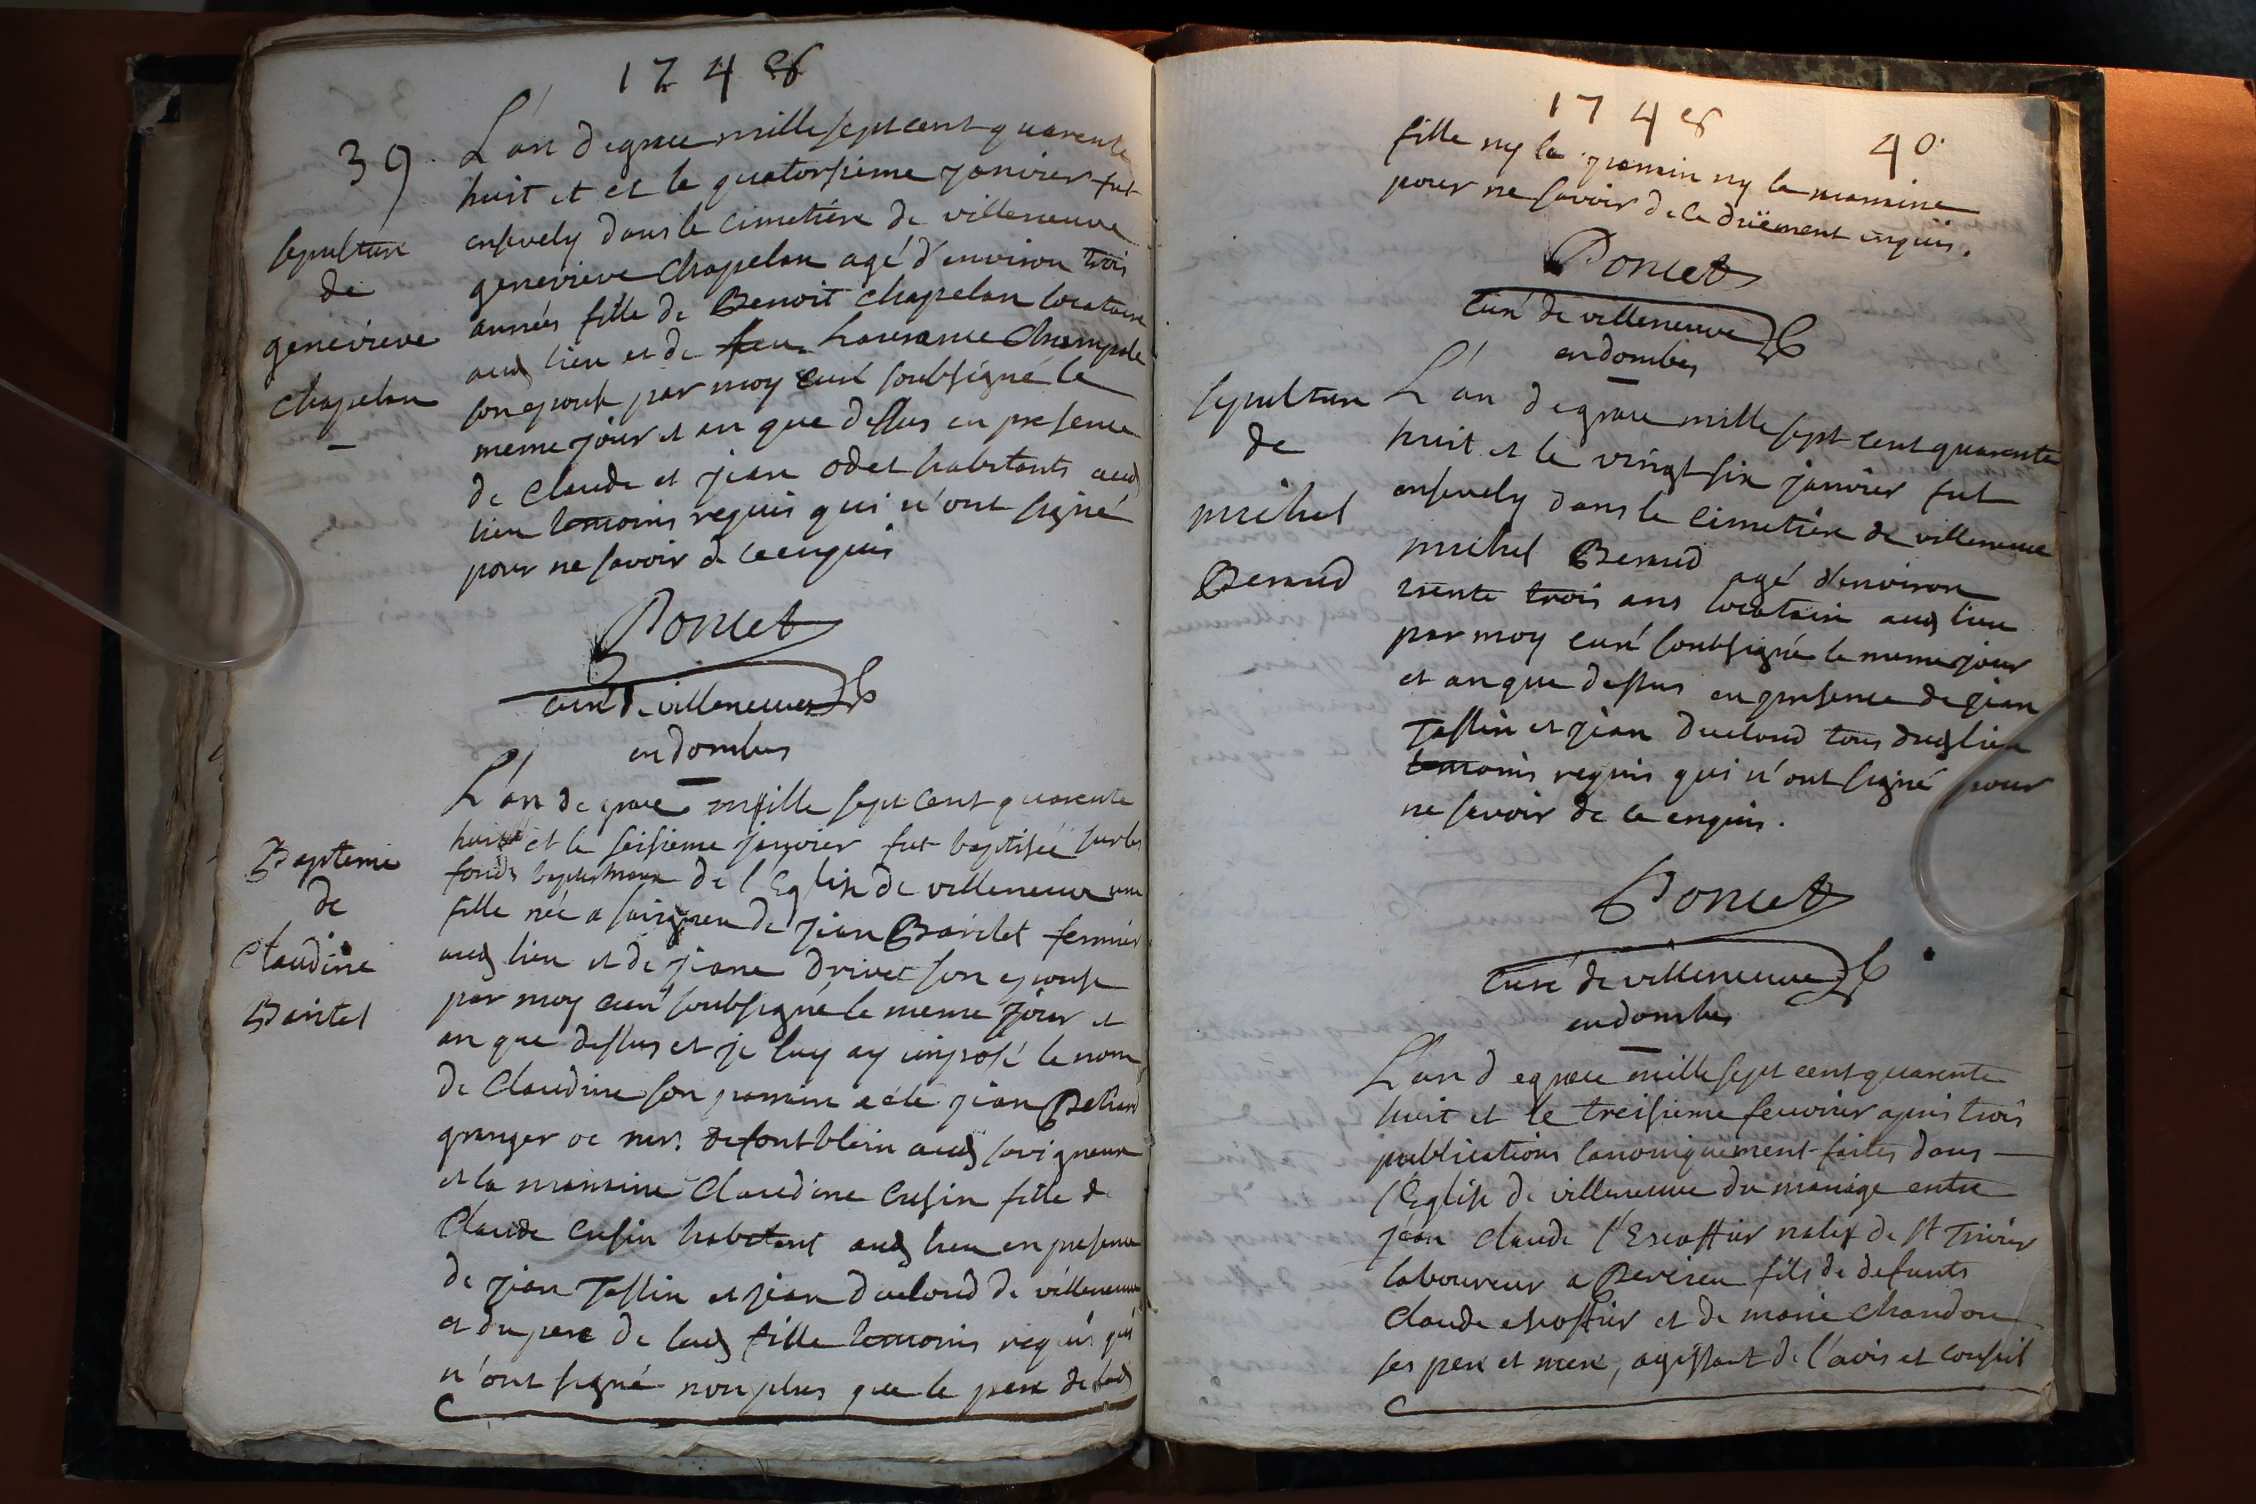 1748
39.
L'an de grace mille sept cent quarente
huit et et le quatorsieme janvier fut
ensevely dans le cimetiere de villeneuve
genevieve Chapelan agé d'environ trois
années fille de Benoit chapelan locataire
aud lieu et de feu
son epouse par moy curé soubsigné le
meme jour et an que dessus en presence
de Claude et jean odet habitants aud
lieu temoins requis qui n'ont signé
pour ne savoir de ce enquis
sepulture
de
genevieve
chapelan
Poncet
curé de villeneuve
en dombes
L'an de grace mille sept cent quarente
huit et le seisieme janvier fut baptisée sur les
fonds baptismaux de l'Eglise de villeneuve une
fille née a savigneu de jean Baritet fermier
aud lieu et de jeane drivet son epouse
par moy curé soubsigné le meme jour et
an que dessus et je luy ay imposé le nom
de Claudine son parrain a eté jean
granger de mr. aud savigneux
et la marraine Claudine Cusin fille de
Claude Cusin habitant aud lieu en presence
de jean Tassin et jean duclond de villeneuve
et du pere de lad fille temoins requis qui
n'ont signé non plus que le pere de lad
Bapteme
de
Claudine
Baritet
1748
40.
fille ny le parrain ny la marraine
pour ne savoir de ce düement enquis.
Poncet
curé de villeneuve
en dombes
sepulture
de
michel
Beraud
L'an de grace mille sept cent quarente
huit et le vingt six janvier fut
ensevely dans le cimetiere de villeneuve
michel Beraud agé d'environ
trente trois ans locatair aud lieu
par moy curé soubsigné le meme jour
et an que dessus en presence de jean
Tassin et jean duclond tous dud lieu
temoins requis qui n'ont signé pour
ne savoir de ce enquis.
Poncet
curé de villeneuve
en dombes
L'an de grace mille sept cent quarente
huit et le treisieme fevrier apres trois
publications canoniquement faites dans
l'Eglise de villeneuve du mariage entre
jean claude l'Escoffier natif de st Trivier
laboureur a fils de defunts
Claude escoffier et de marie chandon
ses pere et mere, agissant de l'avis et conseil